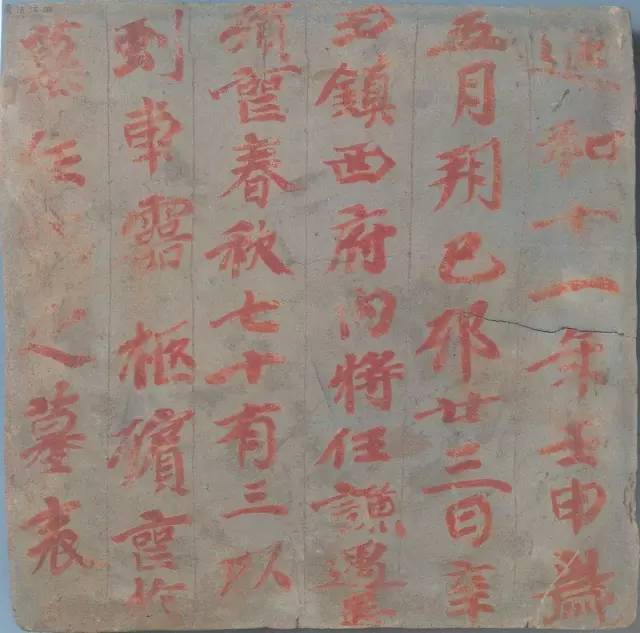 延和十一年壬申歲
五月朔己卯廿三日辛
丑鎮西府內將任謙遇患
殞喪春秋七十有三以
車靈柩殯喪於
墓任之墓表